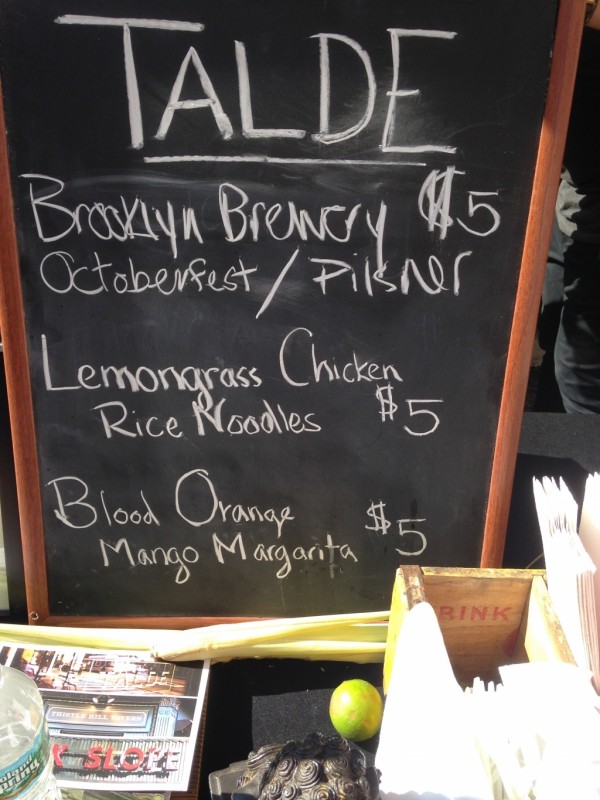 TALDE
Brooklyn Brewery $5
Octoberfest / Pilsner
Lemongrass Chicken
Rice Noodles $5
Blood Orange $5
Mango Margarita
RINK
TALDE
THISTLE HILL TAVERN
K SLOPE
Poland
Spring